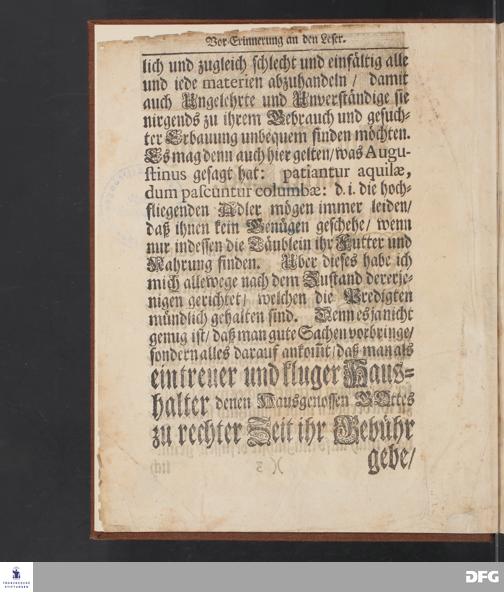 Vor-Erinnerung an den Leser.
lich und zugleich schlecht und einfältig alle
und iede materien abzuhandeln / damit
auch Ungelehrte und Unverständige sie
nirgends zu ihrem Gebrauch und gesuch-
ter Erbauung unbequem finden möchten.
Es mag denn auch hier gelten/ was Augu-
stinus gesagt hat: patiantur aquilæ,
dum pascuntur columbæ: d. i. die hoch-
fliegenden Adler mögen immer leiden/
daß ihnen kein Genügen geschehe/ wenn
nur indessen die Täublein ihr Futter und
Nahrung finden. Uber dieses habe ich
mich allewege nach dem Zustand dererje-
nigen gerichtet/ welchen die Predigten
mündlich gehalten sind. Denn es ja nicht
genug ist/ daß man gute Sachen vorbringe/
sondern alles darauf ankom̃t/ daß man als
ein treuer und kluger Haus-
halter denen Hausgenossen GOttes
zu rechter Zeit ihr Gebühr
gebe/
FRANCKESCHE
STIFTUNGEN
DFG